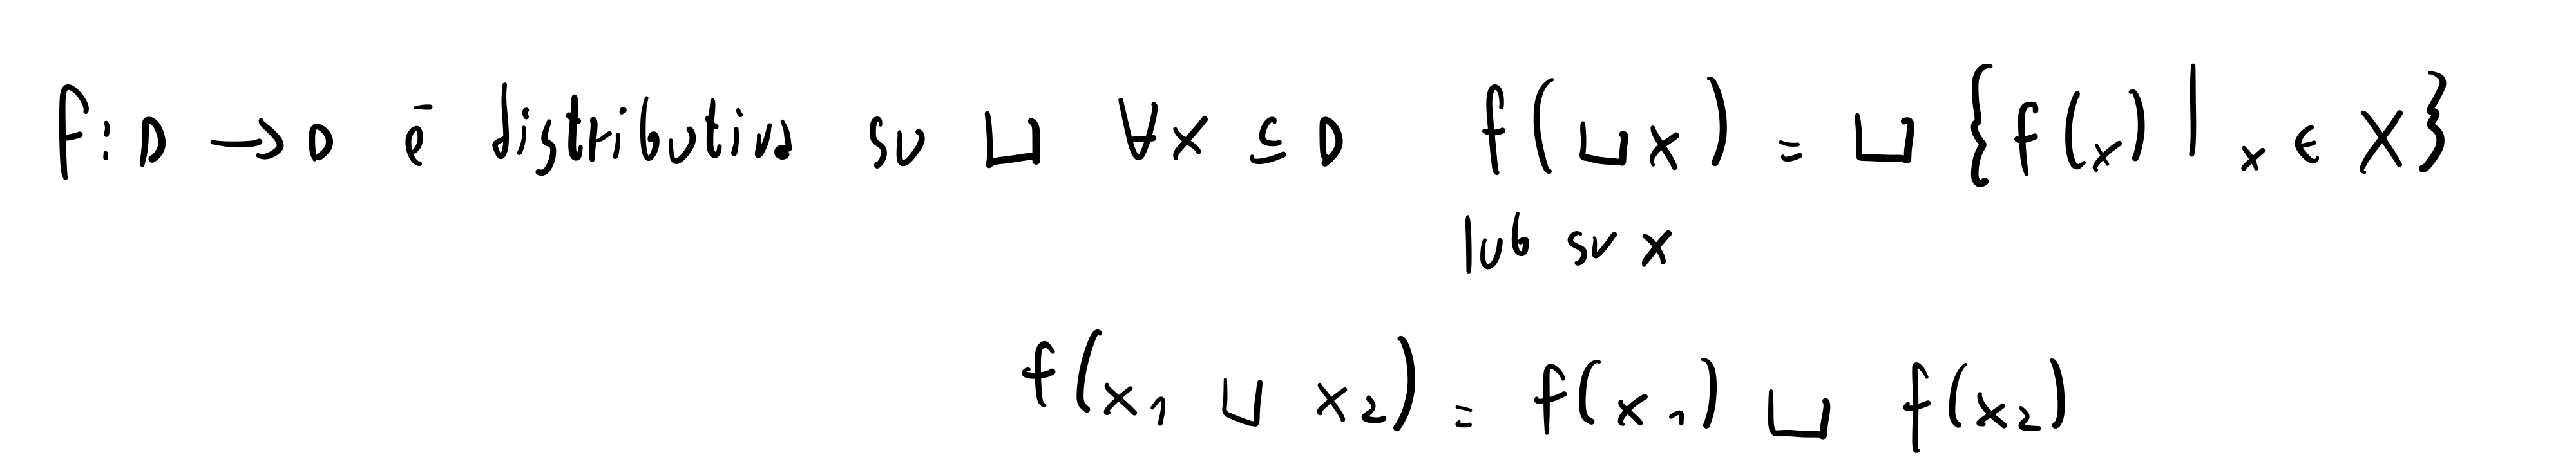 f: D → D è distributiva su ⊔ ∀x ⊆ D f(⊔x) = ⊔ {f(x) | x ∈ X}
lub su x
f(x₁ ⊔ x₂) = f(x₁) ⊔ f(x₂)